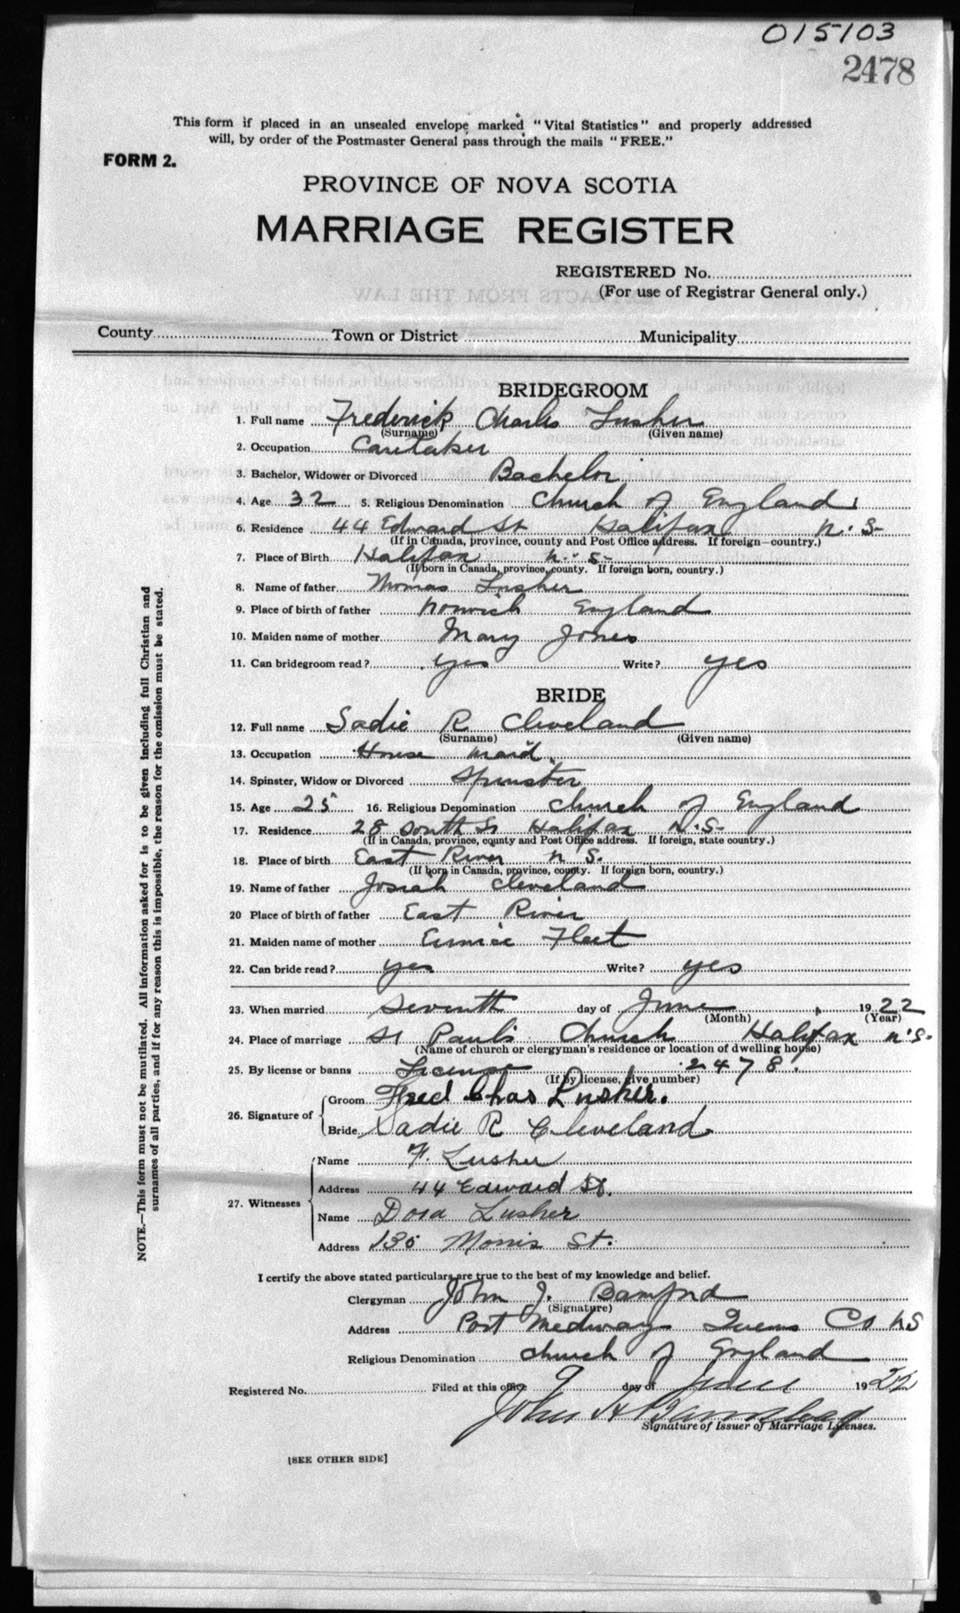 015103
2478
This form if placed in an unsealed envelope marked "Vital Statistics" and properly addressed
will, by order of the Postmaster General pass through the mails "FREE."
FORM 2.
PROVINCE OF NOVA SCOTIA
MARRIAGE REGISTER
REGISTERED No.
(For use of Registrar General only.)
County Town or District Municipality
BRIDEGROOM
1. Full name Frederick Charles Lusher
(Surname) (Given name)
2. Occupation Caretaker
3. Bachelor, Widower or Divorced Bachelor
4. Age 32 5. Religious Denomination Church of England
6. Residence 44 Edward St Halifax N.S.
(If in Canada, province, county and Post Office address. If foreign—country.)
7. Place of Birth Halifax N.S.
(If born in Canada, province, county. If foreign born, country.)
8. Name of father Thomas Lusher
9. Place of birth of father Norwich England
10. Maiden name of mother Mary Jones
11. Can bridegroom read? yes Write? yes
BRIDE
12. Full name Sadie R Cleveland
(Surname) (Given name)
13. Occupation House maid.
14. Spinster, Widow or Divorced Spinster
15. Age 25 16. Religious Denomination Church of England
17. Residence 28 South St Halifax N.S.
(If in Canada, province, county and Post Office address. If foreign, state country.)
18. Place of birth East River N S.
(If born in Canada, province, county. If foreign born, country.)
19. Name of father Josiah Cleveland
20 Place of birth of father East River
21. Maiden name of mother Eunice Fleet
22. Can bride read? yes Write? yes
23. When married Seventh day of June 1922
(Month) (Year)
24. Place of marriage St Paul's Church Halifax N.S.
(Name of church or clergyman's residence or location of dwelling house)
25. By license or banns License 2478.
(If by license, give number)
26. Signature of Groom Fred Chas Lusher.
Bride Sadie R Cleveland
27. Witnesses
Name F. Lusher
Address 44 Edward St.
Name Dora Lusher
Address 135 Morris St.
I certify the above stated particulars are true to the best of my knowledge and belief.
Clergyman John J. Bamford
(Signature)
Address Port Medway Queens Co NS
Religious Denomination Church of England
Registered No. Filed at this office 9 day of June 1922
John H Barnstead
Signature of Issuer of Marriage Licenses.
[SEE OTHER SIDE]
NOTE.—This form must not be mutilated. All information asked for is to be given including full Christian and
surnames of all parties, and if for any reason this is impossible, the reason for the omission must be stated.